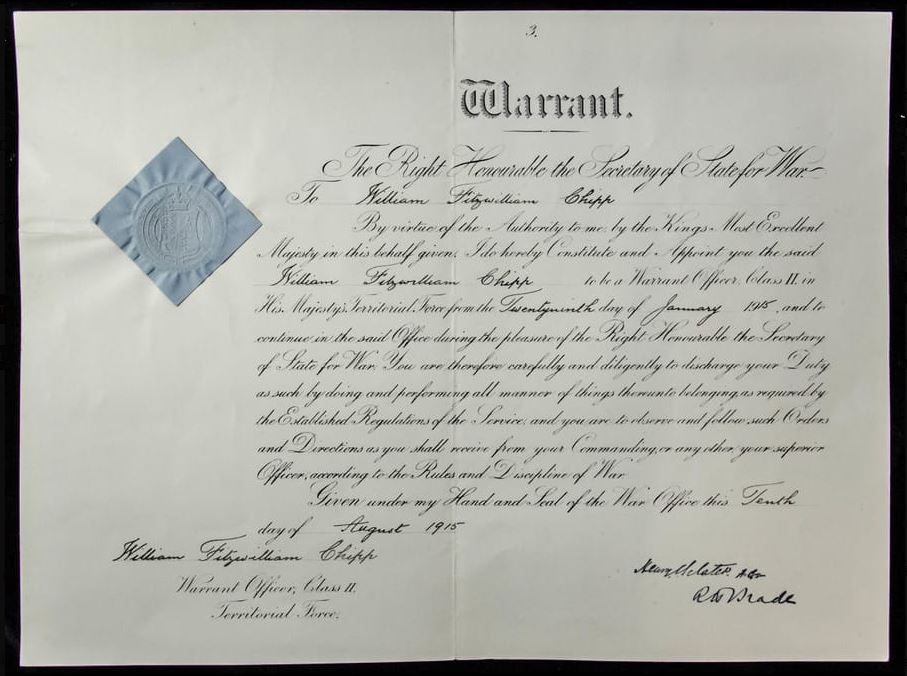 3.
Warrant.
The Right Honourable the Secretary of State for War.
To William Fitzwilliam Chipp
By virtue of the Authority to me, by the Kings Most Excellent
Majesty in this behalf given, I do hereby Constitute and Appoint you the said
William Fitzwilliam Chipp to be a Warrant Officer, Class II. in
His Majesty's Territorial Force from the Twentyninth day of January 1915, and to
continue in the said Office during the pleasure of the Right Honourable the Secretary
of State for War. You are therefore carefully and diligently to discharge your Duty
as such by doing and performing all manner of things thereunto belonging, as required by
the Established Regulations of the Service, and you are to observe and follow such Orders
and Directions as you shall receive from your Commanding, or any other, your superior
Officer, according to the Rules and Discipline of War.
Given under my Hand and Seal of the War Office this Tenth
day of August 1915
William Fitzwilliam Chipp
Warrant Officer, Class II.
Territorial Force.
R W Brade